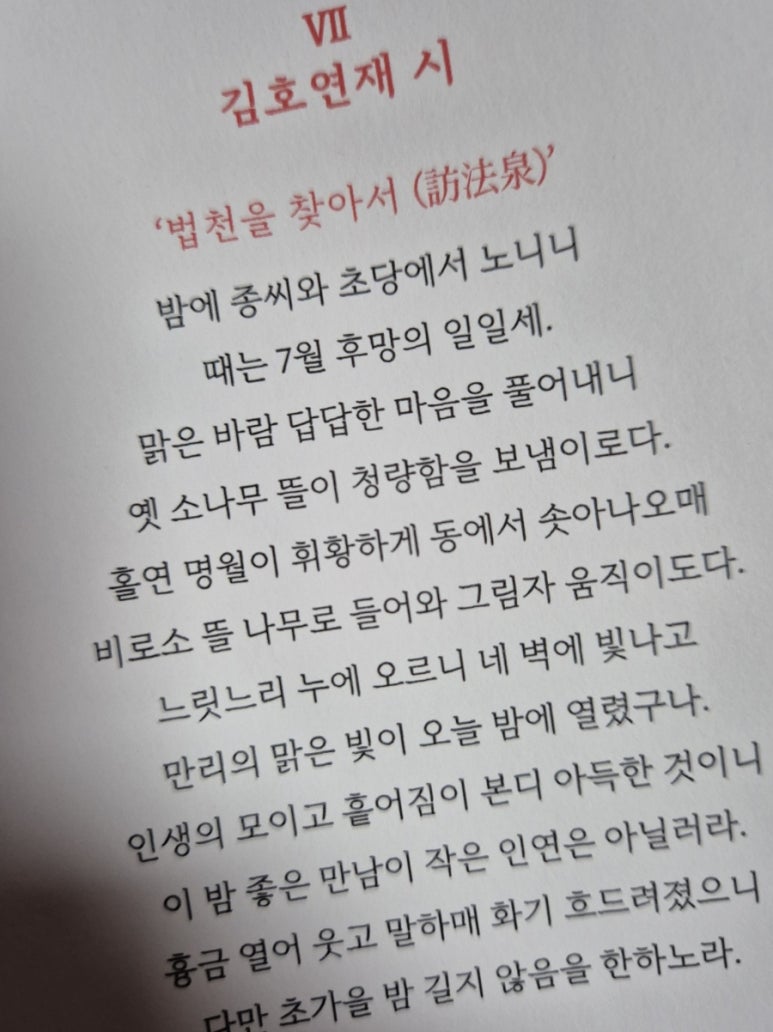 Ⅶ
김호연재 시
‘법천을 찾아서 (訪法泉)’
밤에 종씨와 초당에서 노니니
때는 7월 후망의 일일세.
맑은 바람 답답한 마음을 풀어내니
옛 소나무 뜰이 청량함을 보냄이로다.
홀연 명월이 휘황하게 동에서 솟아나오매
비로소 뜰 나무로 들어와 그림자 움직이도다.
느릿느리 누에 오르니 네 벽에 빛나고
만리의 맑은 빛이 오늘 밤에 열렸구나.
인생의 모이고 흩어짐이 본디 아득한 것이니
이 밤 좋은 만남이 작은 인연은 아닐러라.
흉금 열어 웃고 말하매 화기 흐드려졌으니
다만 초가을 밤 길지 않음을 한하노라.